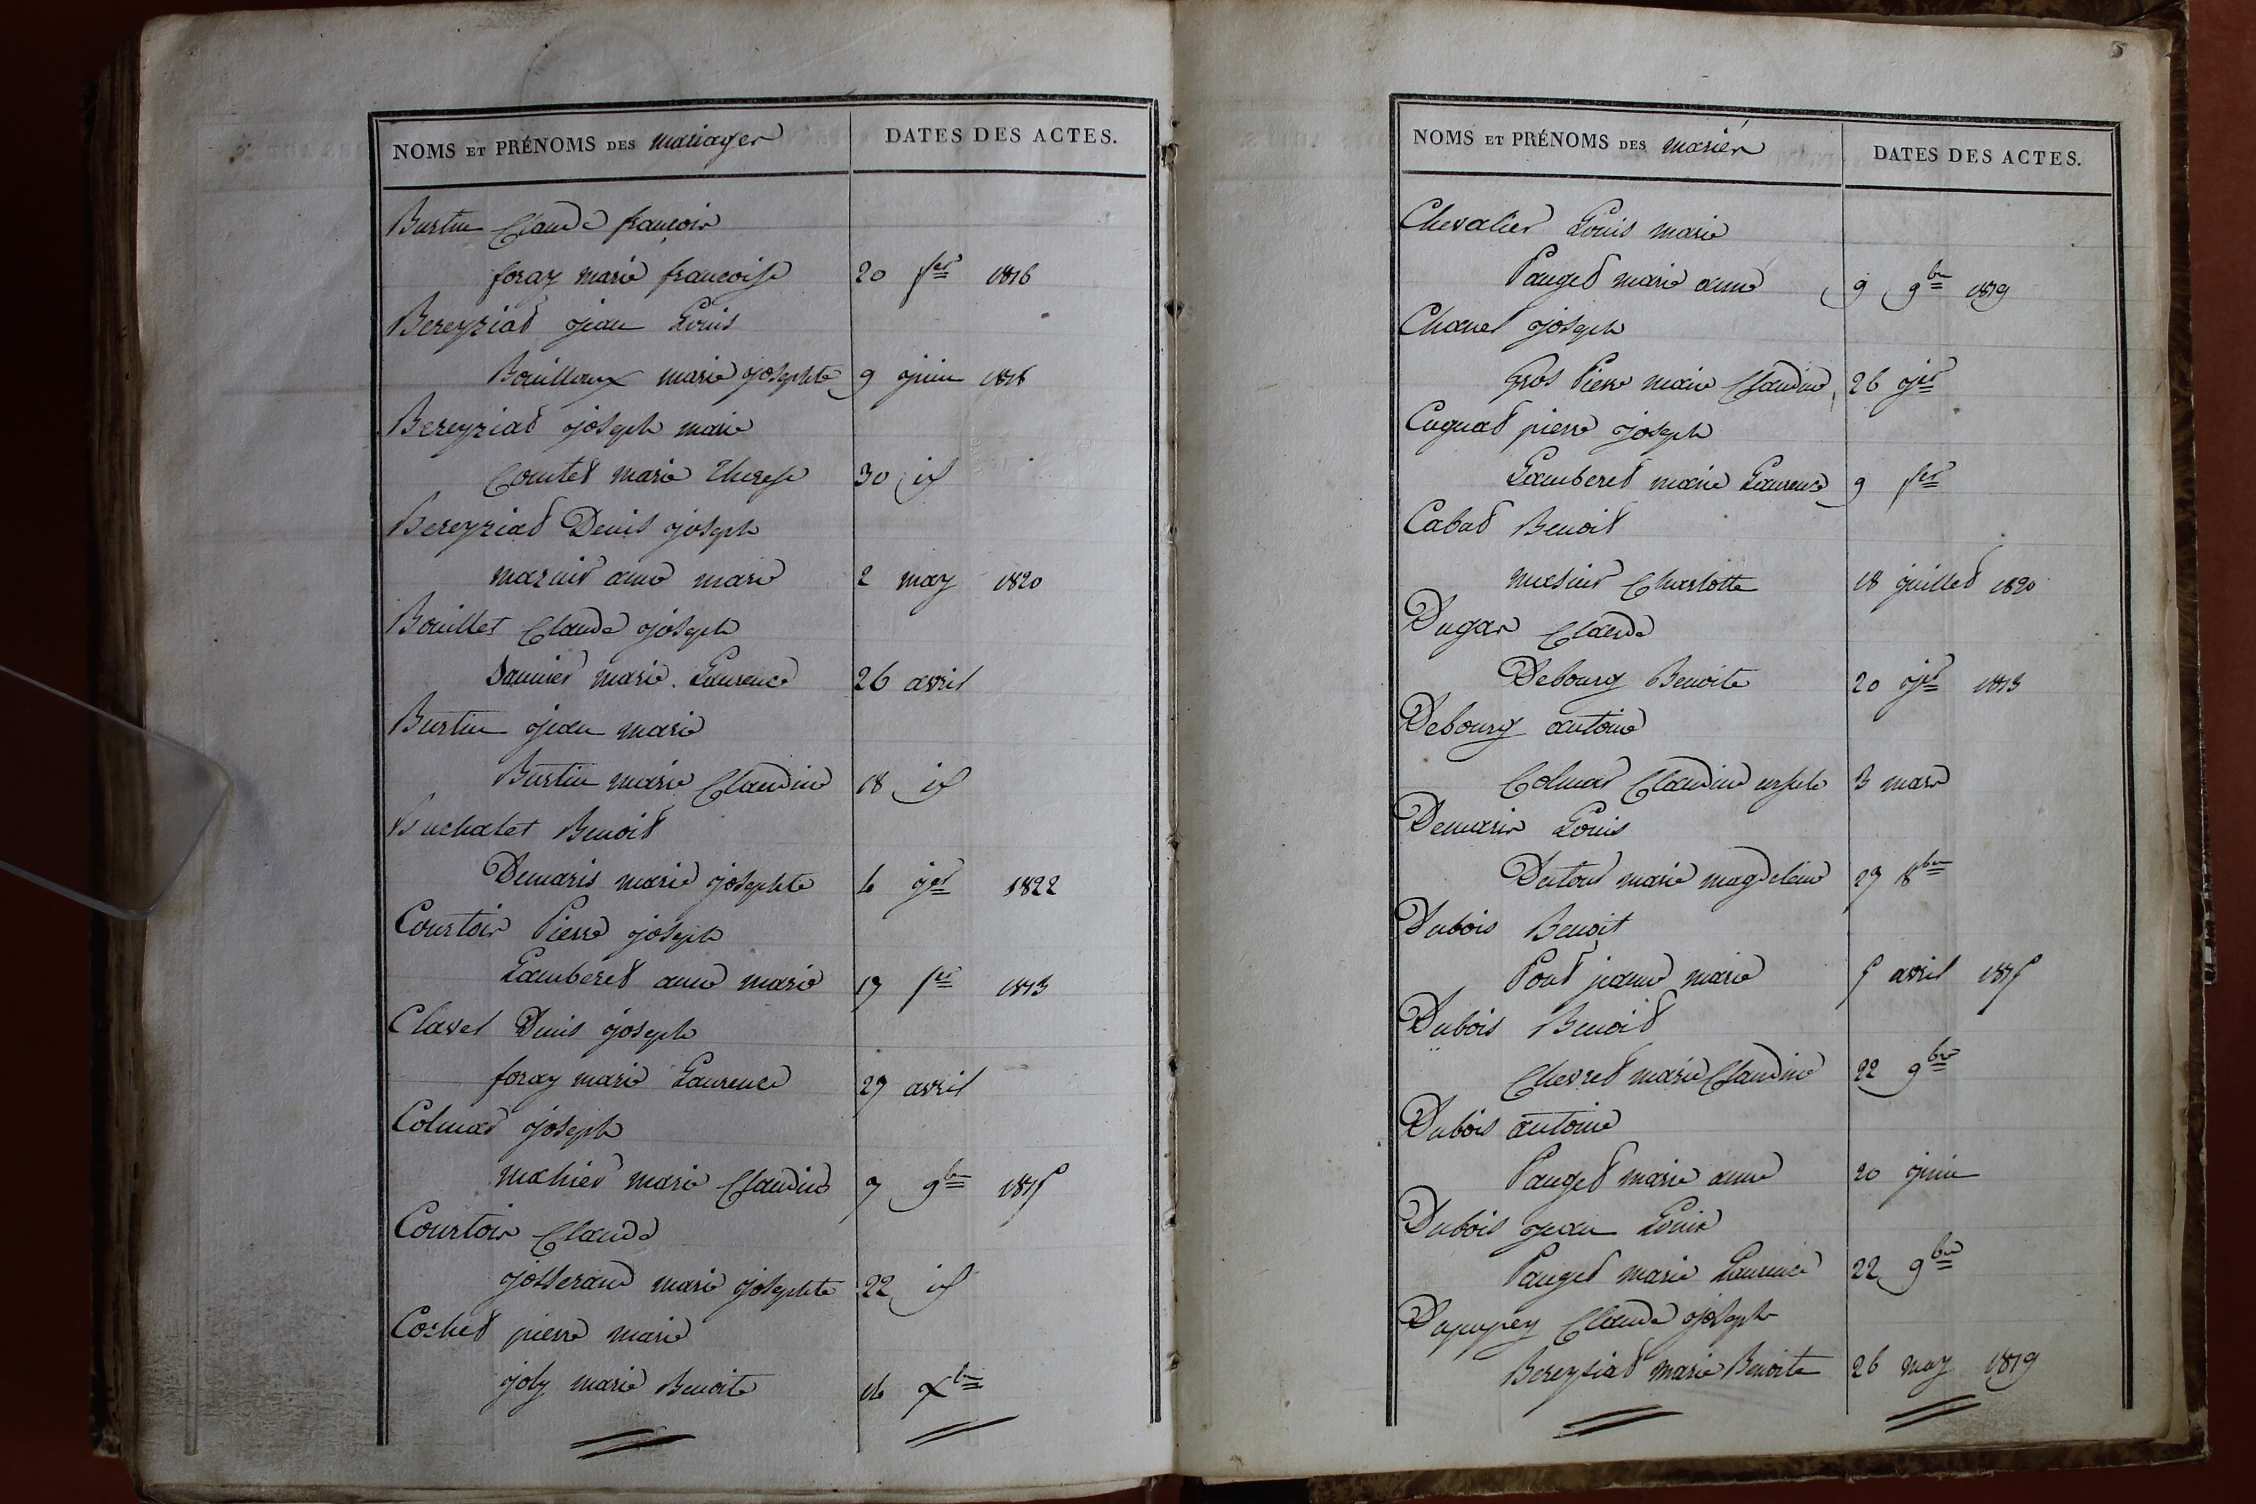 NOMS ET PRÉNOMS DES mariages DATES DES ACTES.
Burtin Claude françois
foray marie françoise 20 fer 1816
Bereyziat jean Louis
Bouilloux marie josephte 9 juin 1818
Bereyziat joseph marie
Comtet marie Therese 30 id
Bereyziat Denis joseph
anne marie 2 may 1820
Bouillet Claude joseph
marie Laurence 26 avril
Burtin jean marie
Burtin marie Claudine 18 id
Buchalet Benoit
Demaris marie josephte 6 jer 1822
Courtois Pierre joseph
Lamberet anne marie 17 fer 1813
Clavel Denis joseph
foray marie Laurence 27 avril
joseph
marie Claudine 7 9bre 1815
Courtois Claude
josserand marie josephte 22 id
Cochet pierre marie
joly marie Benoite 16 Xbre
5
NOMS ET PRÉNOMS DES mariés DATES DES ACTES.
Chevalier Louis marie
Pauget marie anne 9 9bre 1819
Chanel joseph
Gros Pierre marie Claudine 26 jer
pierre joseph
Lamberet marie Laurence 9 fer
Cabat Benoit
Charlotte 18 juillet 1820
Dugas Claude
Debourg Benoite 20 jer 1813
Debourg antoine
Claudine 3 mars
Demaris Louis
Dutour marie magdelene 27 8bre
Dubois Benoit
Pont jeanne marie 5 avril 1815
Dubois Benoit
Chevret marie Claudine 22 9bre
Dubois antoine
Pauget marie anne 20 juin
Dubois jean Louis
Pauget marie Laurence 22 9bre
Dupupey Claude joseph
Bereysiat marie Benoite 26 may 1819